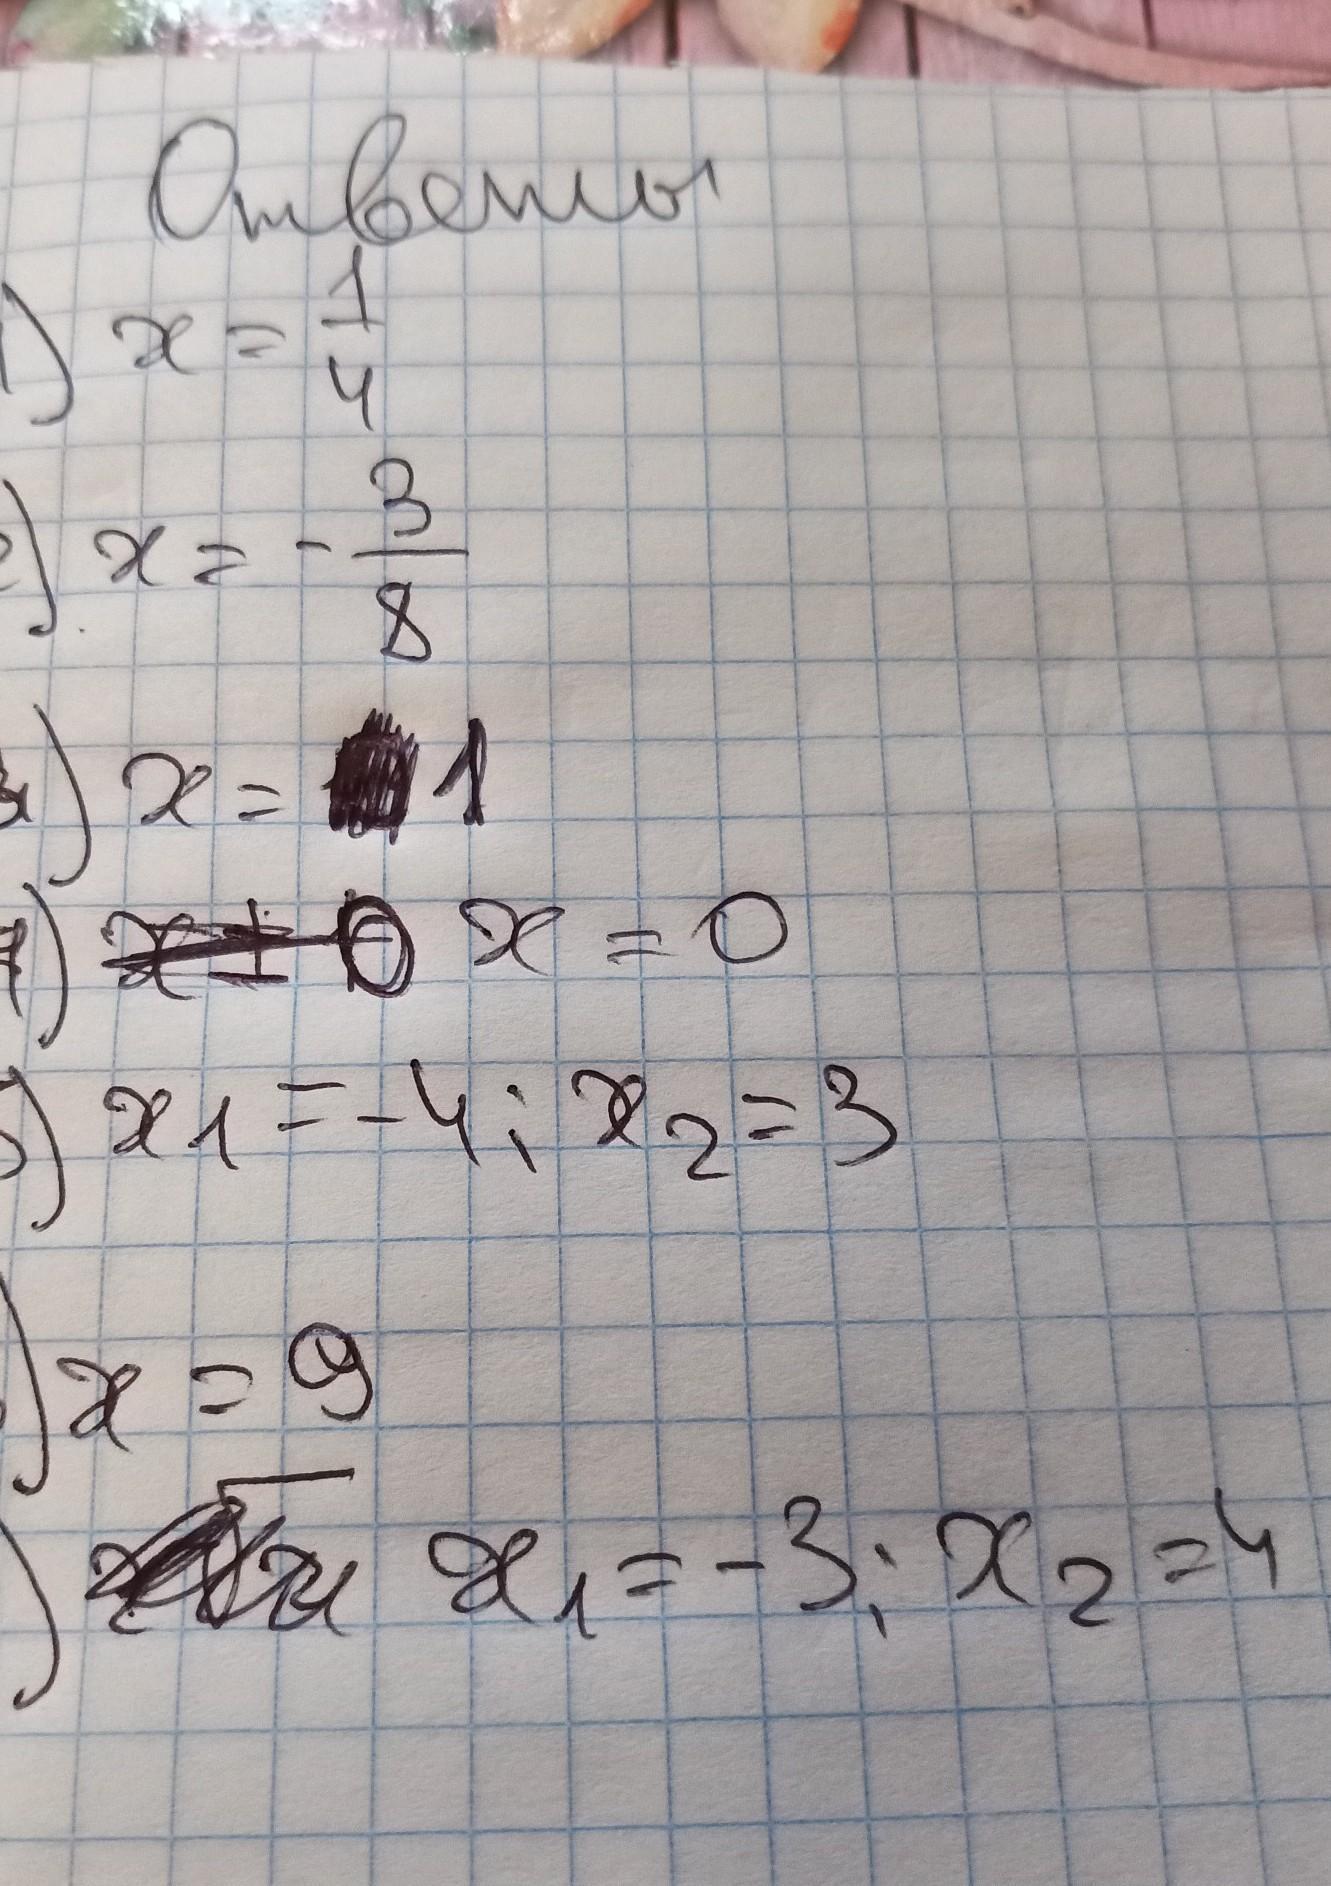 Ответы
1) x = 1/4
2) x = - 3/8
3) x = 1
4) x = 0
5) x₁ = -4; x₂ = 3
) x = 9
) x₁ = -3; x₂ = 4